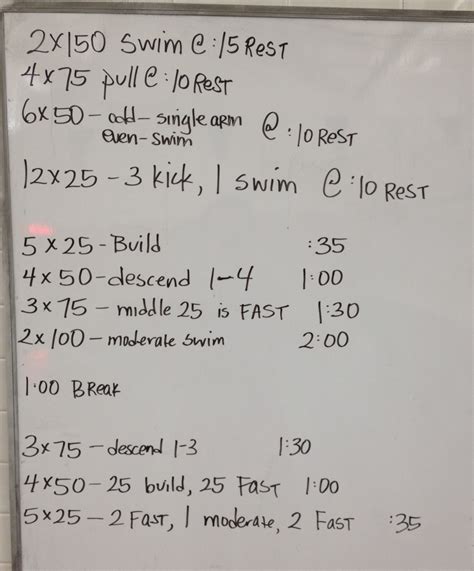 2x150 Swim @ :15 Rest
4x75 pull @ :10 Rest
6x50 - odd - single arm @ :10 Rest
even - swim
12x25 - 3 kick, 1 swim @ :10 Rest
5x25 - Build :35
4x50 - descend 1-4 1:00
3x75 - middle 25 is FAST 1:30
2x100 - moderate swim 2:00
1:00 Break
3x75 - descend 1-3 1:30
4x50 - 25 build, 25 Fast 1:00
5x25 - 2 Fast, 1 moderate, 2 Fast :35